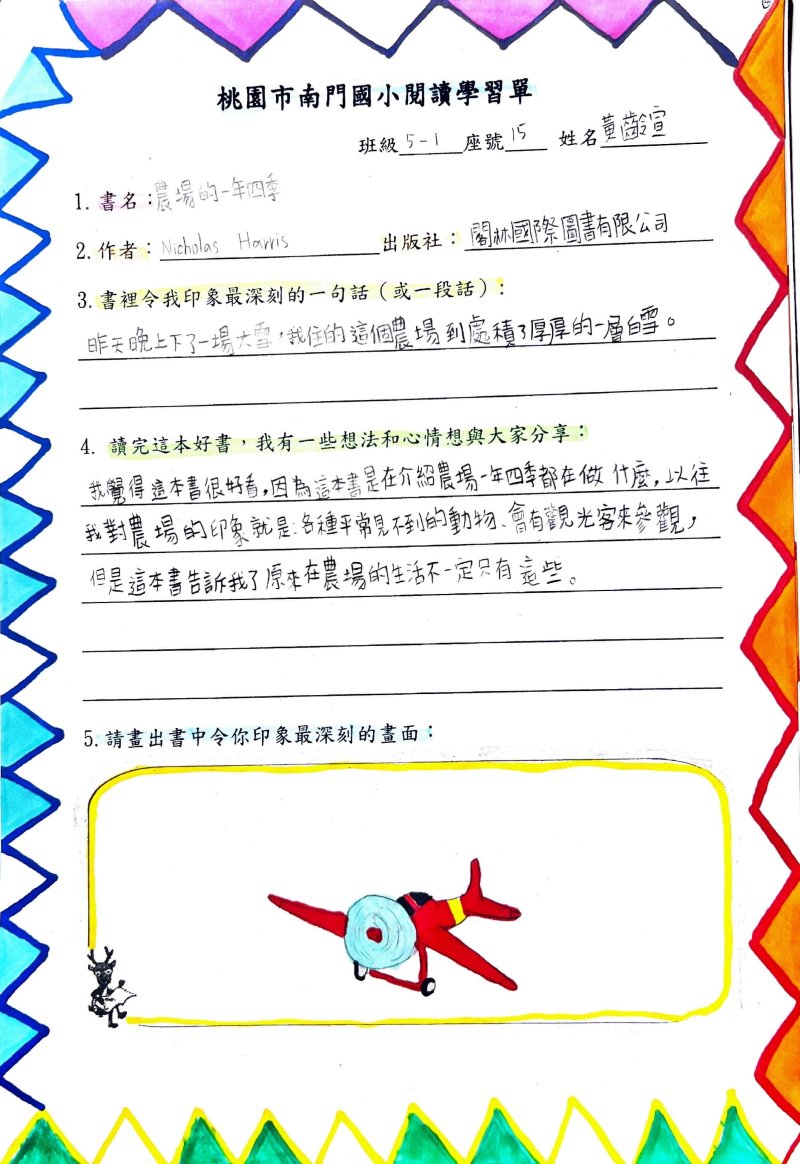 桃園市南門國小閱讀學習單
班級 5-1 座號 15 姓名 黃齡宣
1. 書名：農場的一年四季
2. 作者：Nicholas Harris 出版社：閣林國際圖書有限公司
3. 書裡令我印象最深刻的一句話（或一段話）：
昨天晚上下了一場大雪，我住的這個農場到處積了厚厚的一層白雪。
4. 讀完這本好書，我有一些想法和心情想與大家分享：
我覺得這本書很好看，因為這本書是在介紹農場一年四季都在做什麼，以往
我對農場的印象就是：各種平常見不到的動物、會有觀光客來參觀，
但是這本書告訴我了原來在農場的生活不一定只有這些。
5. 請畫出書中令你印象最深刻的畫面：